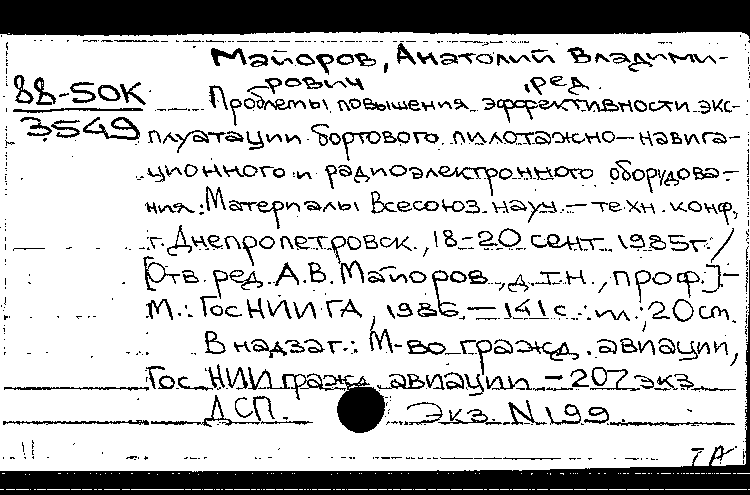 Майоров, Анатолий Владими-
рович, ред.
88-50К
3549
Проблемы повышения эффективности экс-
плуатации бортового пилотажно-навига-
ционного и радиоэлектронного оборудова-
ния: Материалы Всесоюз. науч.-техн. конф.,
г. Днепропетровск, 18-20 сент. 1985г. /
[Отв. ред. А.В. Майоров, д.т.н., проф.].-
М.: ГосНИИГА, 1986.-141 с.: ил.; 20 см.
В надзаг.: М-во гражд. авиации,
Гос. НИИ гражд. авиации - 207 экз.
ДСП. Экз. N199.